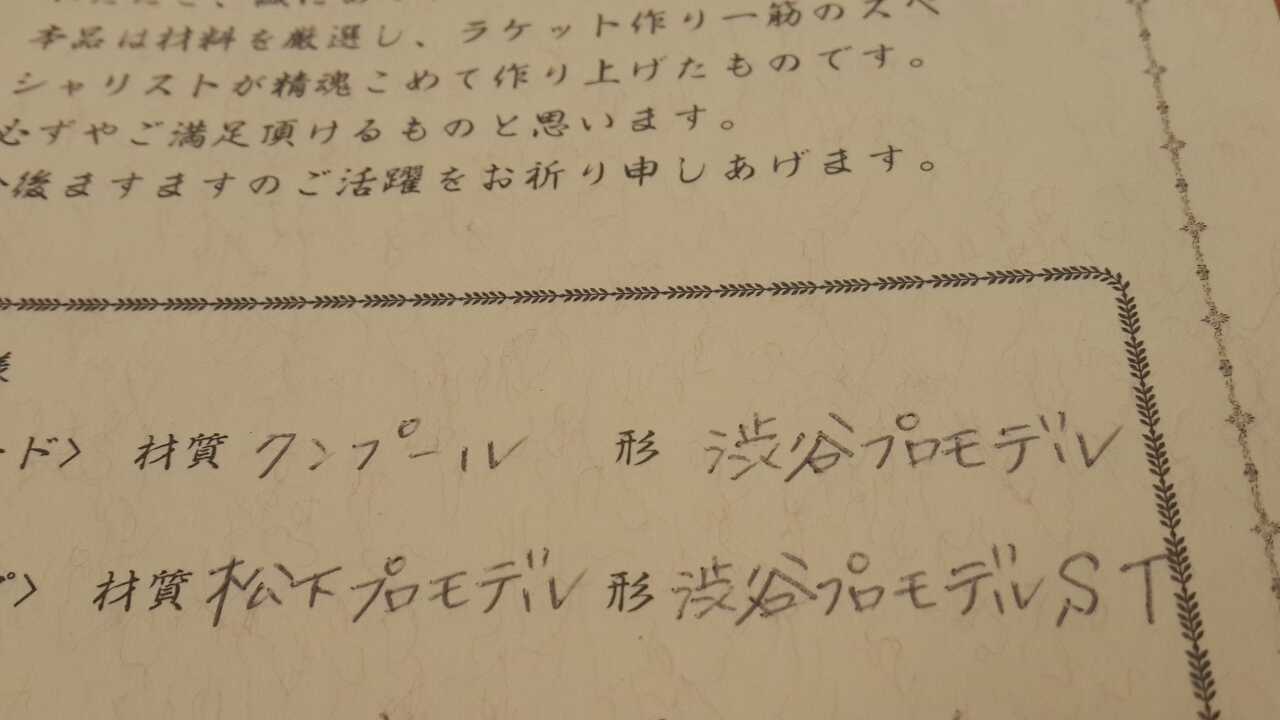 本品は材料を厳選し、ラケット作り一筋のスペ
シャリストが精魂こめて作り上げたものです。
必ずやご満足頂けるものと思います。
後ますますのご活躍をお祈り申しあげます。
様
ード〉 材質 クンプール 形 渋谷プロモデル
プ〉 材質 松下プロモデル 形 渋谷プロモデルST